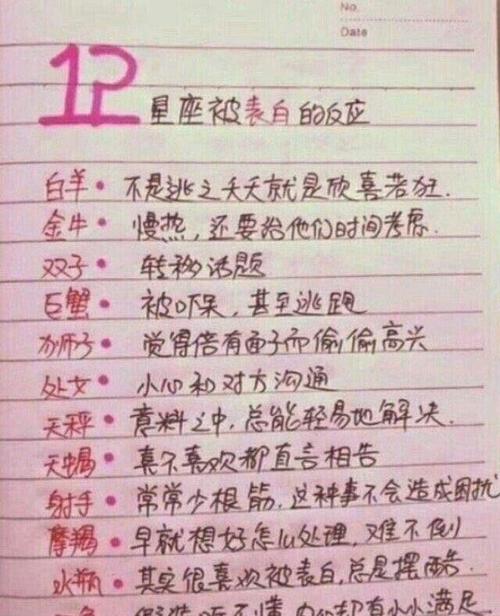 No.
Date
12星座被表白的反应
白羊·不是逃之夭夭就是欣喜若狂.
金牛·慢热,还要给他们时间考虑.
双子·转移话题
巨蟹·被吓呆,甚至逃跑
狮子·觉得倍有面子而偷偷高兴
处女·小心和对方沟通
天秤·意料之中,总能轻易地解决.
天蝎·喜不喜欢都直言相告
射手·常常少根筋,这种事不会造成困扰
摩羯·早就想好怎么处理,难不倒
水瓶·其实很喜欢被表白,总是摆酷.